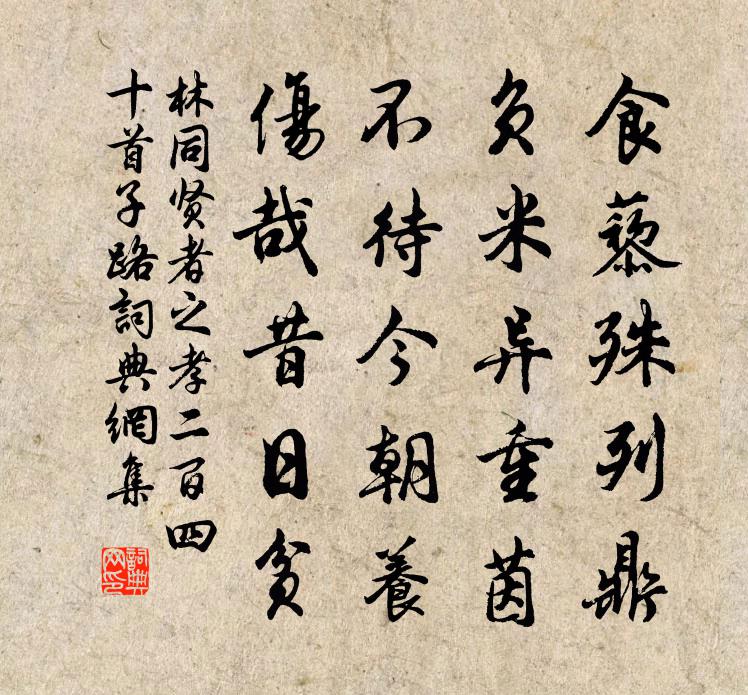 食藜殊列鼎
負米异重茵
不待今朝養
傷哉昔日貧
林同贤者之孝二百四
十首子路詞典網集
詞典网印